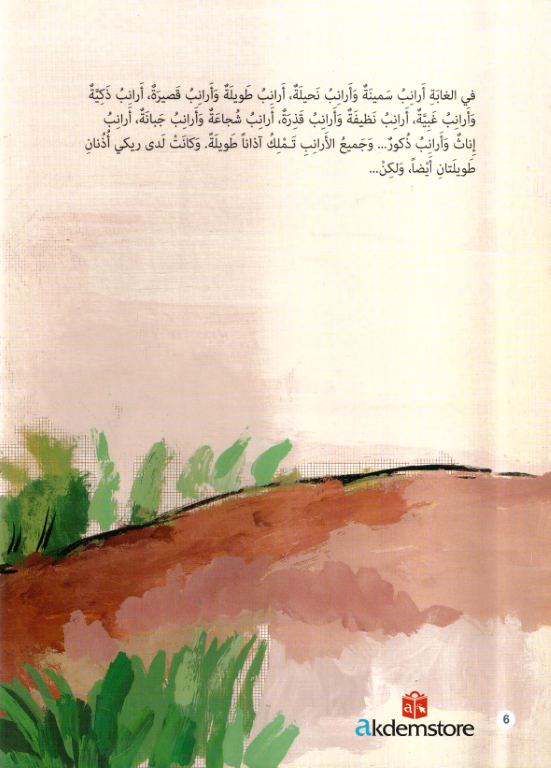 في الغابَةِ أَرانِبُ سَمينَةٌ وَأَرانِبُ نَحيلَةٌ، أَرانِبُ طَويلَةٌ وَأَرانِبُ قَصيرَةٌ، أَرانِبُ ذَكِيَّةٌ
وَأَرانِبُ غَبِيَّةٌ، أَرانِبُ نَظيفَةٌ وَأَرانِبُ قَذِرَةٌ، أَرانِبُ شُجاعَةٌ وَأَرانِبُ جَبانَةٌ، أَرانِبُ
إِناثٌ وَأَرانِبُ ذُكورٌ... وَجَميعُ الأَرانِبِ تَـمْلِكُ آذاناً طَويلَةً. وَكانَتْ لَدى ريكي أُذُنانِ
طَويلَتانِ أَيْضاً، وَلكِنْ...
a
akdemstore
6